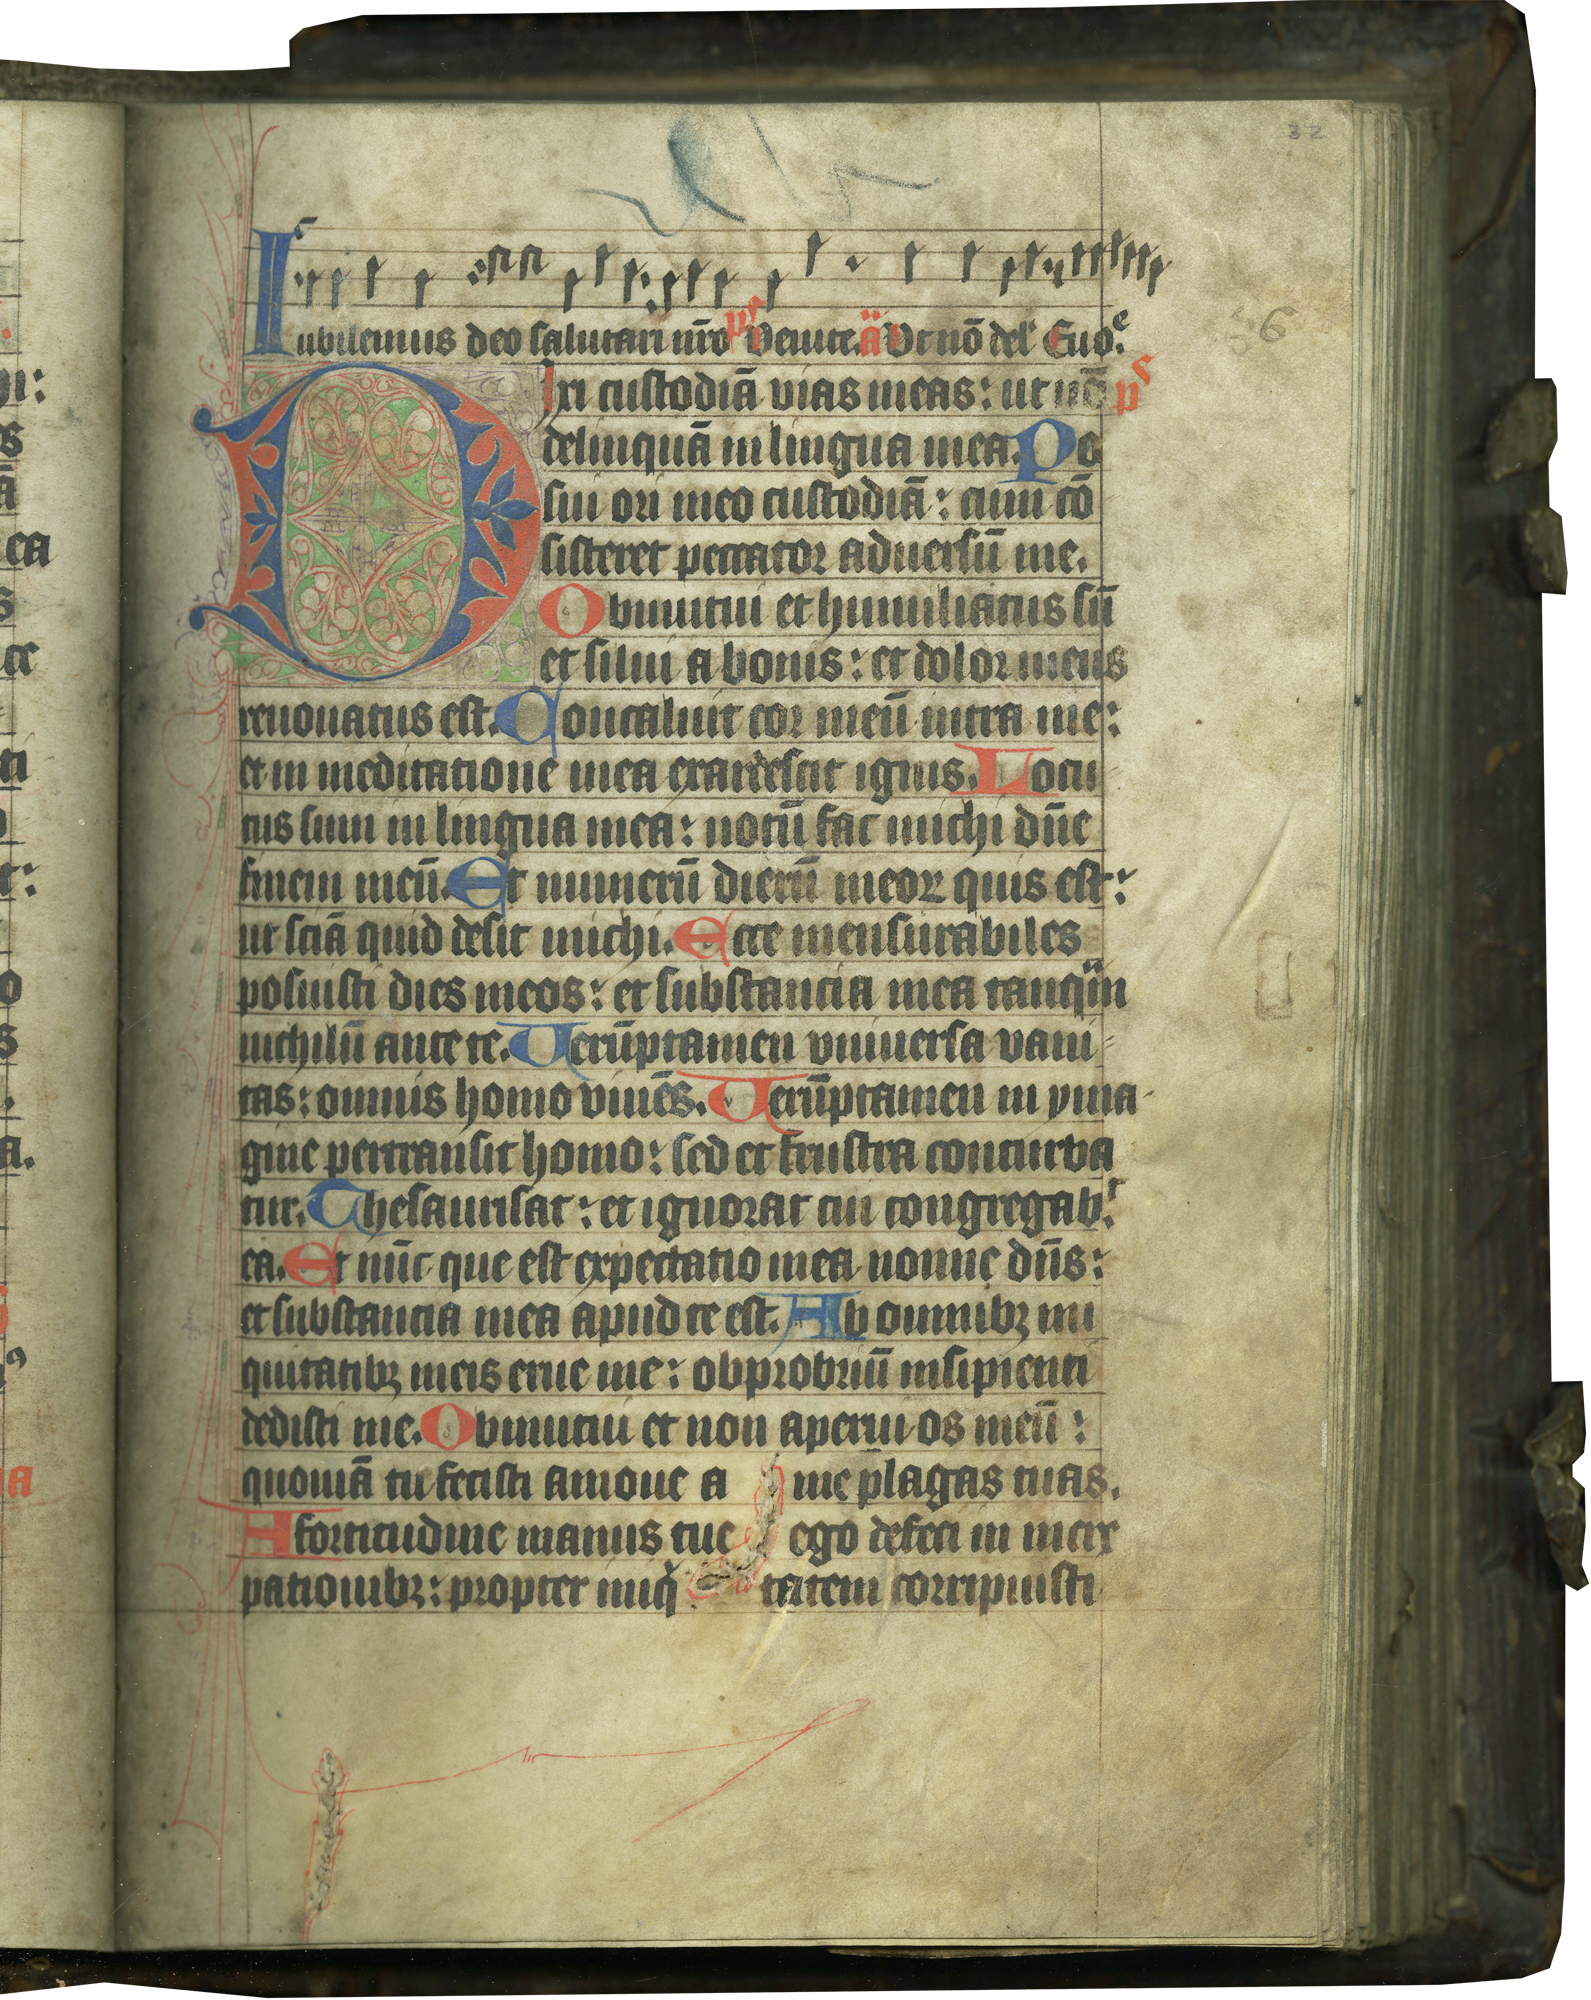 32
Iubilemus deo salutari nr̄o p̄s Venite. ā Vt nō del' Euoe.
56
Dixi custodiā vias meas: ut nō ps
delinquā in lingua mea. Po
sui ori meo custodiā: cum cō
sisteret peccator aduersū me.
Obmutui et humiliatus sū
et silui a bonis: et dolor meus
renouatus est. Concaluit cor meū intra me:
et in meditatione mea exardescit ignis. Locu
tus sum in lingua mea: notū fac michi dn̄e
finem meū. Et numerū dierū meoꝝ quis est:
ut sciā quid desit michi. Ecce mensurabiles
posuisti dies meos: et substancia mea tanqm̄
nichilū ante te. Uerūptamen vniuersa vani
tas: omnis homo viuēs. Uerūptamen in yma
gine pertransit homo: sed et frustra conturba
tur. Thesaurisat: et ignorat cui congregabt
ea. Et nūc que est expectatio mea nonne dn̄s:
et substancia mea apud te est. Ab omnibꝫ ini
quitatibꝫ meis erue me: obprobriū insipienti
dedisti me. Obmutui et non aperui os meū:
quoniā tu fecisti amoue a me plagas tuas.
A fortitudine manus tue ego defeci in incre
pationibꝫ: propter iniq tatem corripuisti